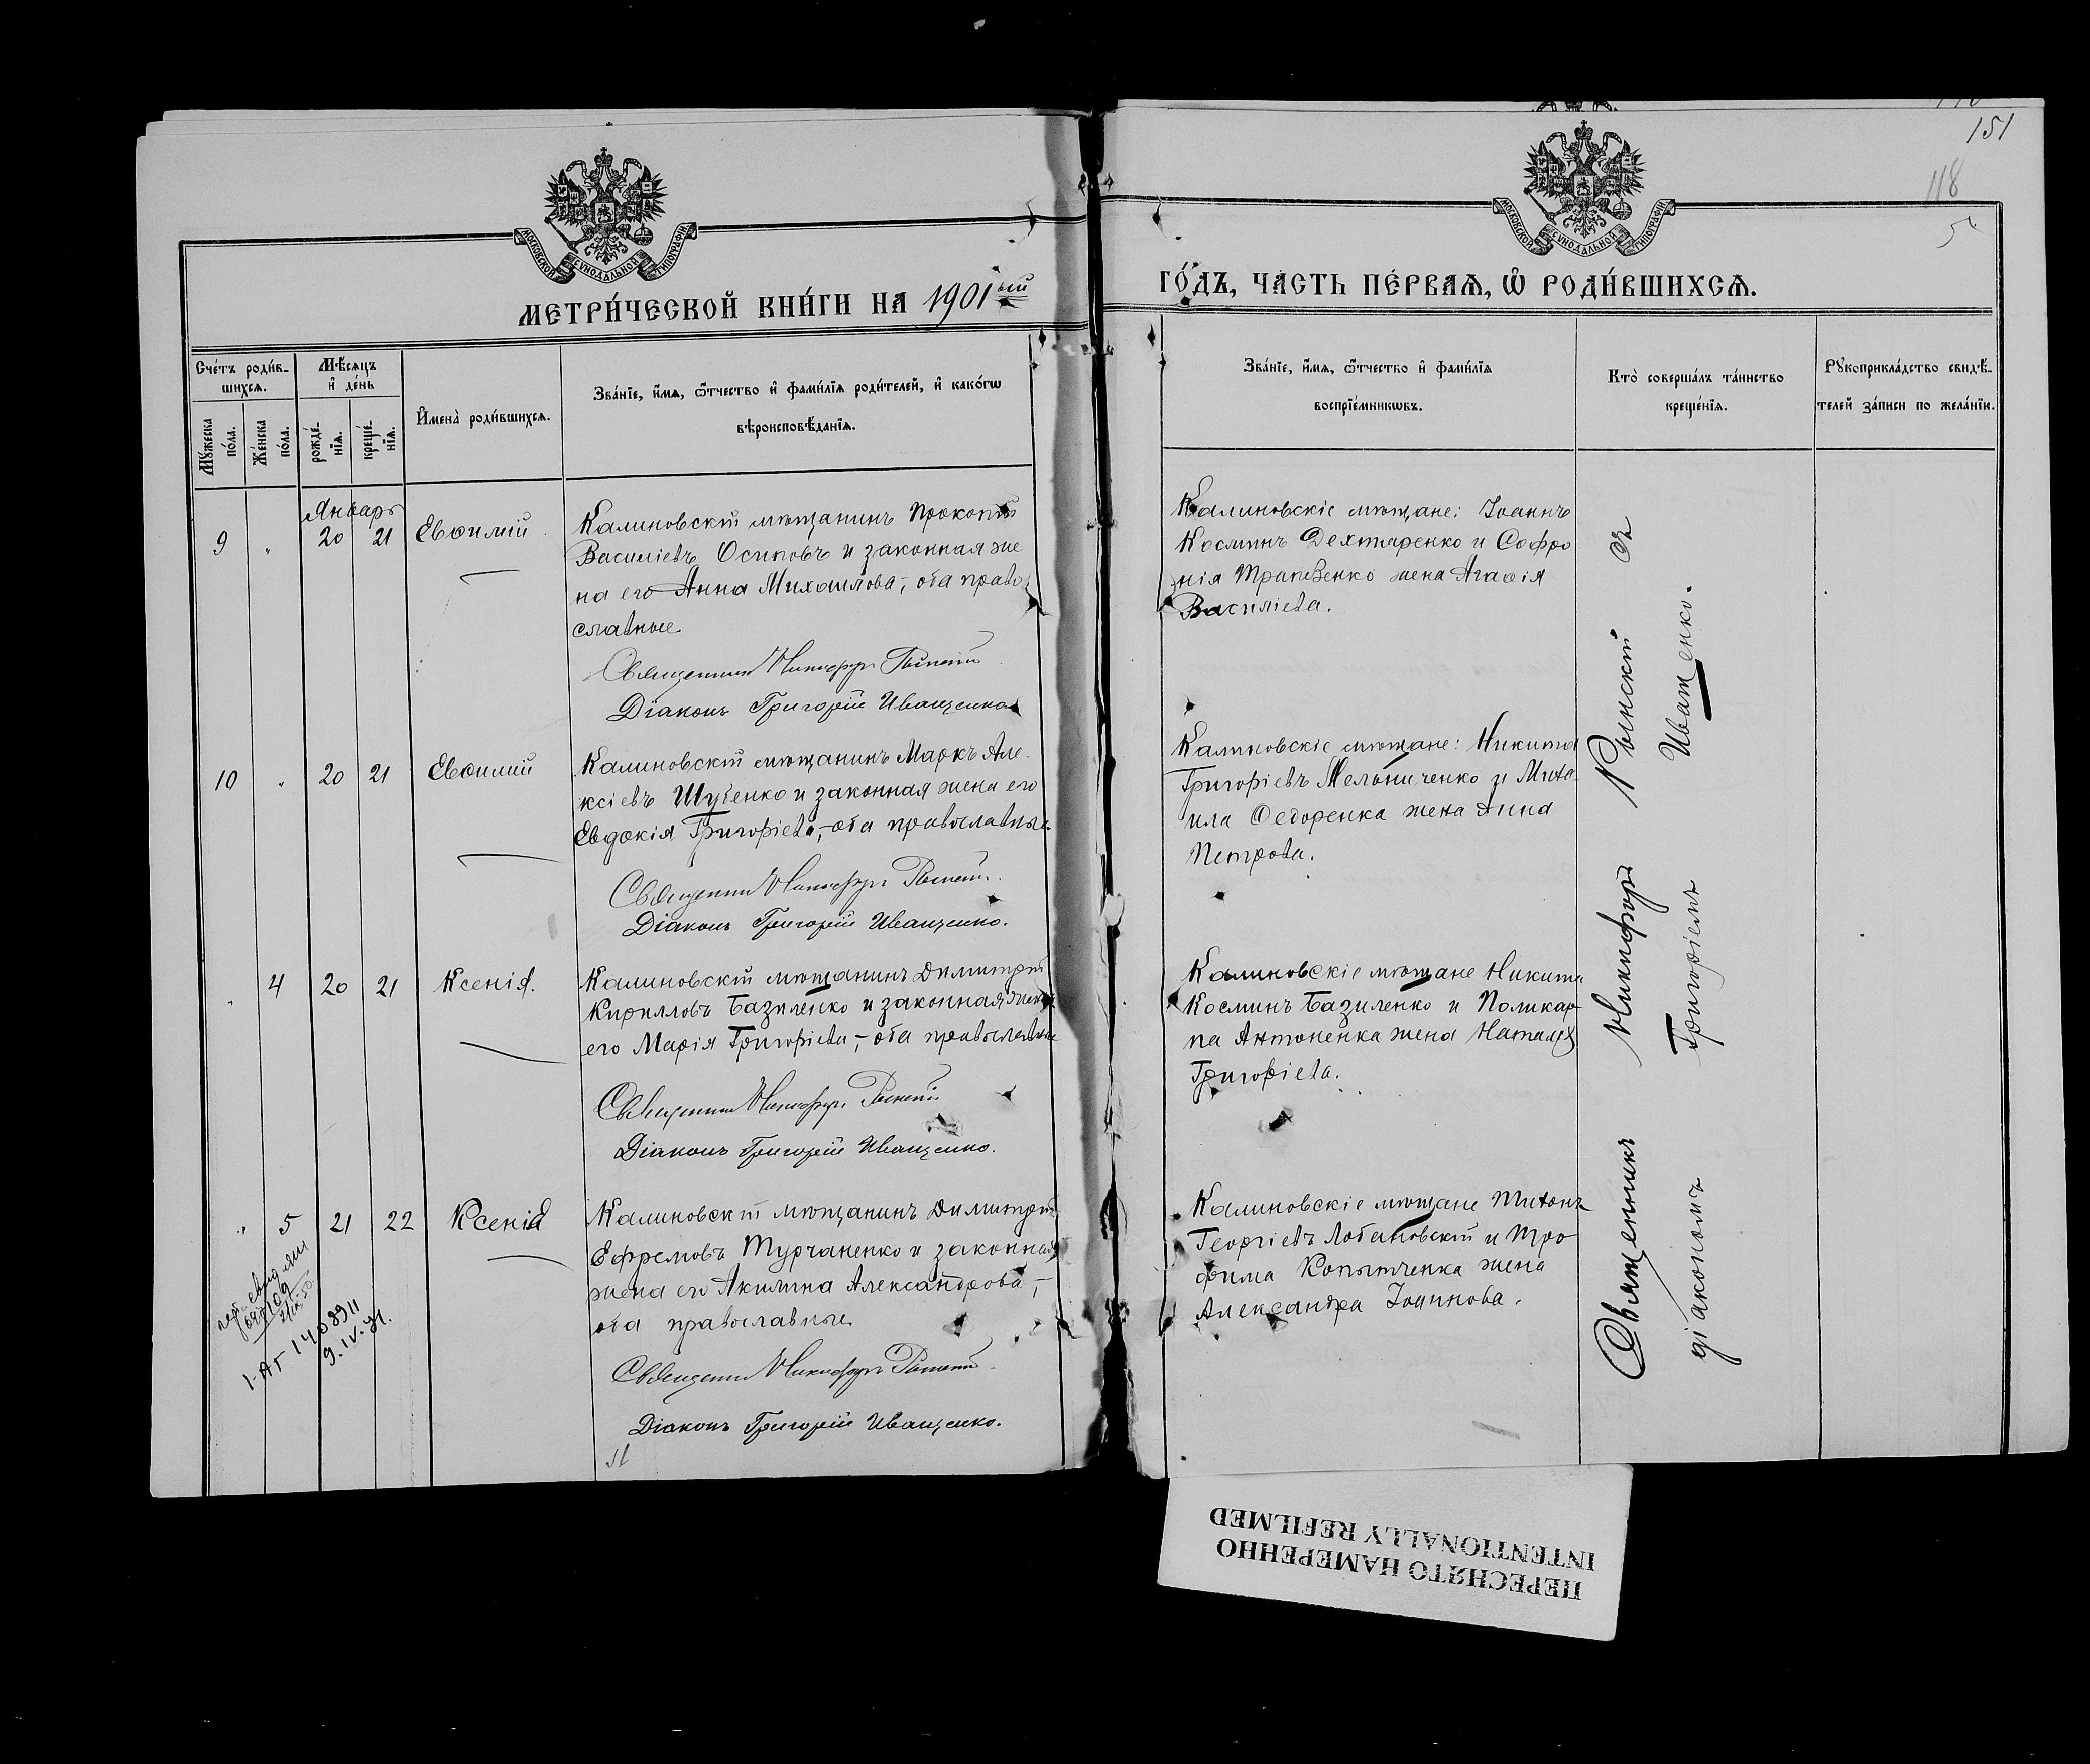 151
118
5
МОСКОВСКОЙ СѴНОДАЛЬНОЙ ТИПОГРАФІИ
МОСКОВСКОЙ СѴНОДАЛЬНОЙ ТИПОГРАФІИ
МЕТРИ́ЧЕСКОЙ КНИ́ГИ НА 1901ый
ГО́ДЪ, ЧА́СТЬ ПЕ́РВАѦ, Ѿ РОДИ́ВШИХСѦ.
Сче́тъ роди́в-
шихсѧ.
Мꙋ́жеска
по́ла.
Же́нска
по́ла.
Мѣ́сѧцъ
и҆ де́нь
рожде́-
нїѧ.
креще́-
нїѧ.
И҆мена̀ роди́вшихсѧ.
Зва́нїе, и҆́мѧ, ѻ҆́тчество и҆ фами́лїѧ роди́телей, и҆ како́гѡ
вѣроисповѣ́данїѧ.
Зва́нїе, и҆́мѧ, ѻ҆́тчество и҆ фами́лїѧ
воспрїе́мникѡвъ.
Кто̀ соверша́лъ та́инство
креще́нїѧ.
Рꙋкоприкла́дство свидѣ́-
телей за́писи по жела́нїю.
Январь
9 " 20 21 Евѳимій
Калиновскій мѣщанинъ Прокопій
Василіевъ Осиповъ и законная же
на его Анна Михаилова, - оба право
славные
Священникъ Никифоръ Рынскій
Діаконъ Григорій Иващенко
Калиновскіе мѣщане: Іоаннъ
Косминъ Дехтяренко и Софро
нія жена Агаѳія
Василіева.
10 " 20 21 Евѳимій
Калиновскій мѣщанинъ Маркъ Але-
ксіевъ Шубенко и законная жена его
Евдокія Григоріева, - оба православные
Священникъ Никифоръ Рынскій.
Діаконъ Григорій Иващенко.
Калиновскіе мѣщане: Никита
Григоріевъ Мельниченко и Миха
ила Ѳедоренка жена Анна
Петрова.
" 4 20 21 Ксенія.
Калиновскій мѣщанинъ Димитрій
Кирилловъ Базиленко и законная жена
его Марія Григоріева, - оба православные
Священникъ Никифоръ Рынскій
Діаконъ Григорій Иващенко.
Калиновскіе мѣщане Никита
Косминъ Базиленко и Поликар
па Антоненка жена Наталія
Григоріева.
" 5 21 22 Ксенія
Калиновскій мѣщанинъ Димитрій
Ефремовъ Турчаненко и законная
жена его Акилина Александрова, -
оба православные
Священникъ Никифоръ Рынскій
Діаконъ Григорій Иващенко.
Калиновскіе мѣщане Тихонъ
Георгіевъ Лобановскій и Тро
фима Копытченка жена
Александра Іоаннова.
Священникъ Никифоръ Рынскій съ
діакономъ Григоріемъ Иващенко.
9.IV-71.
ПЕРЕСНЯТО НАМЕРЕННО
INTENTIONALLY REFILMED